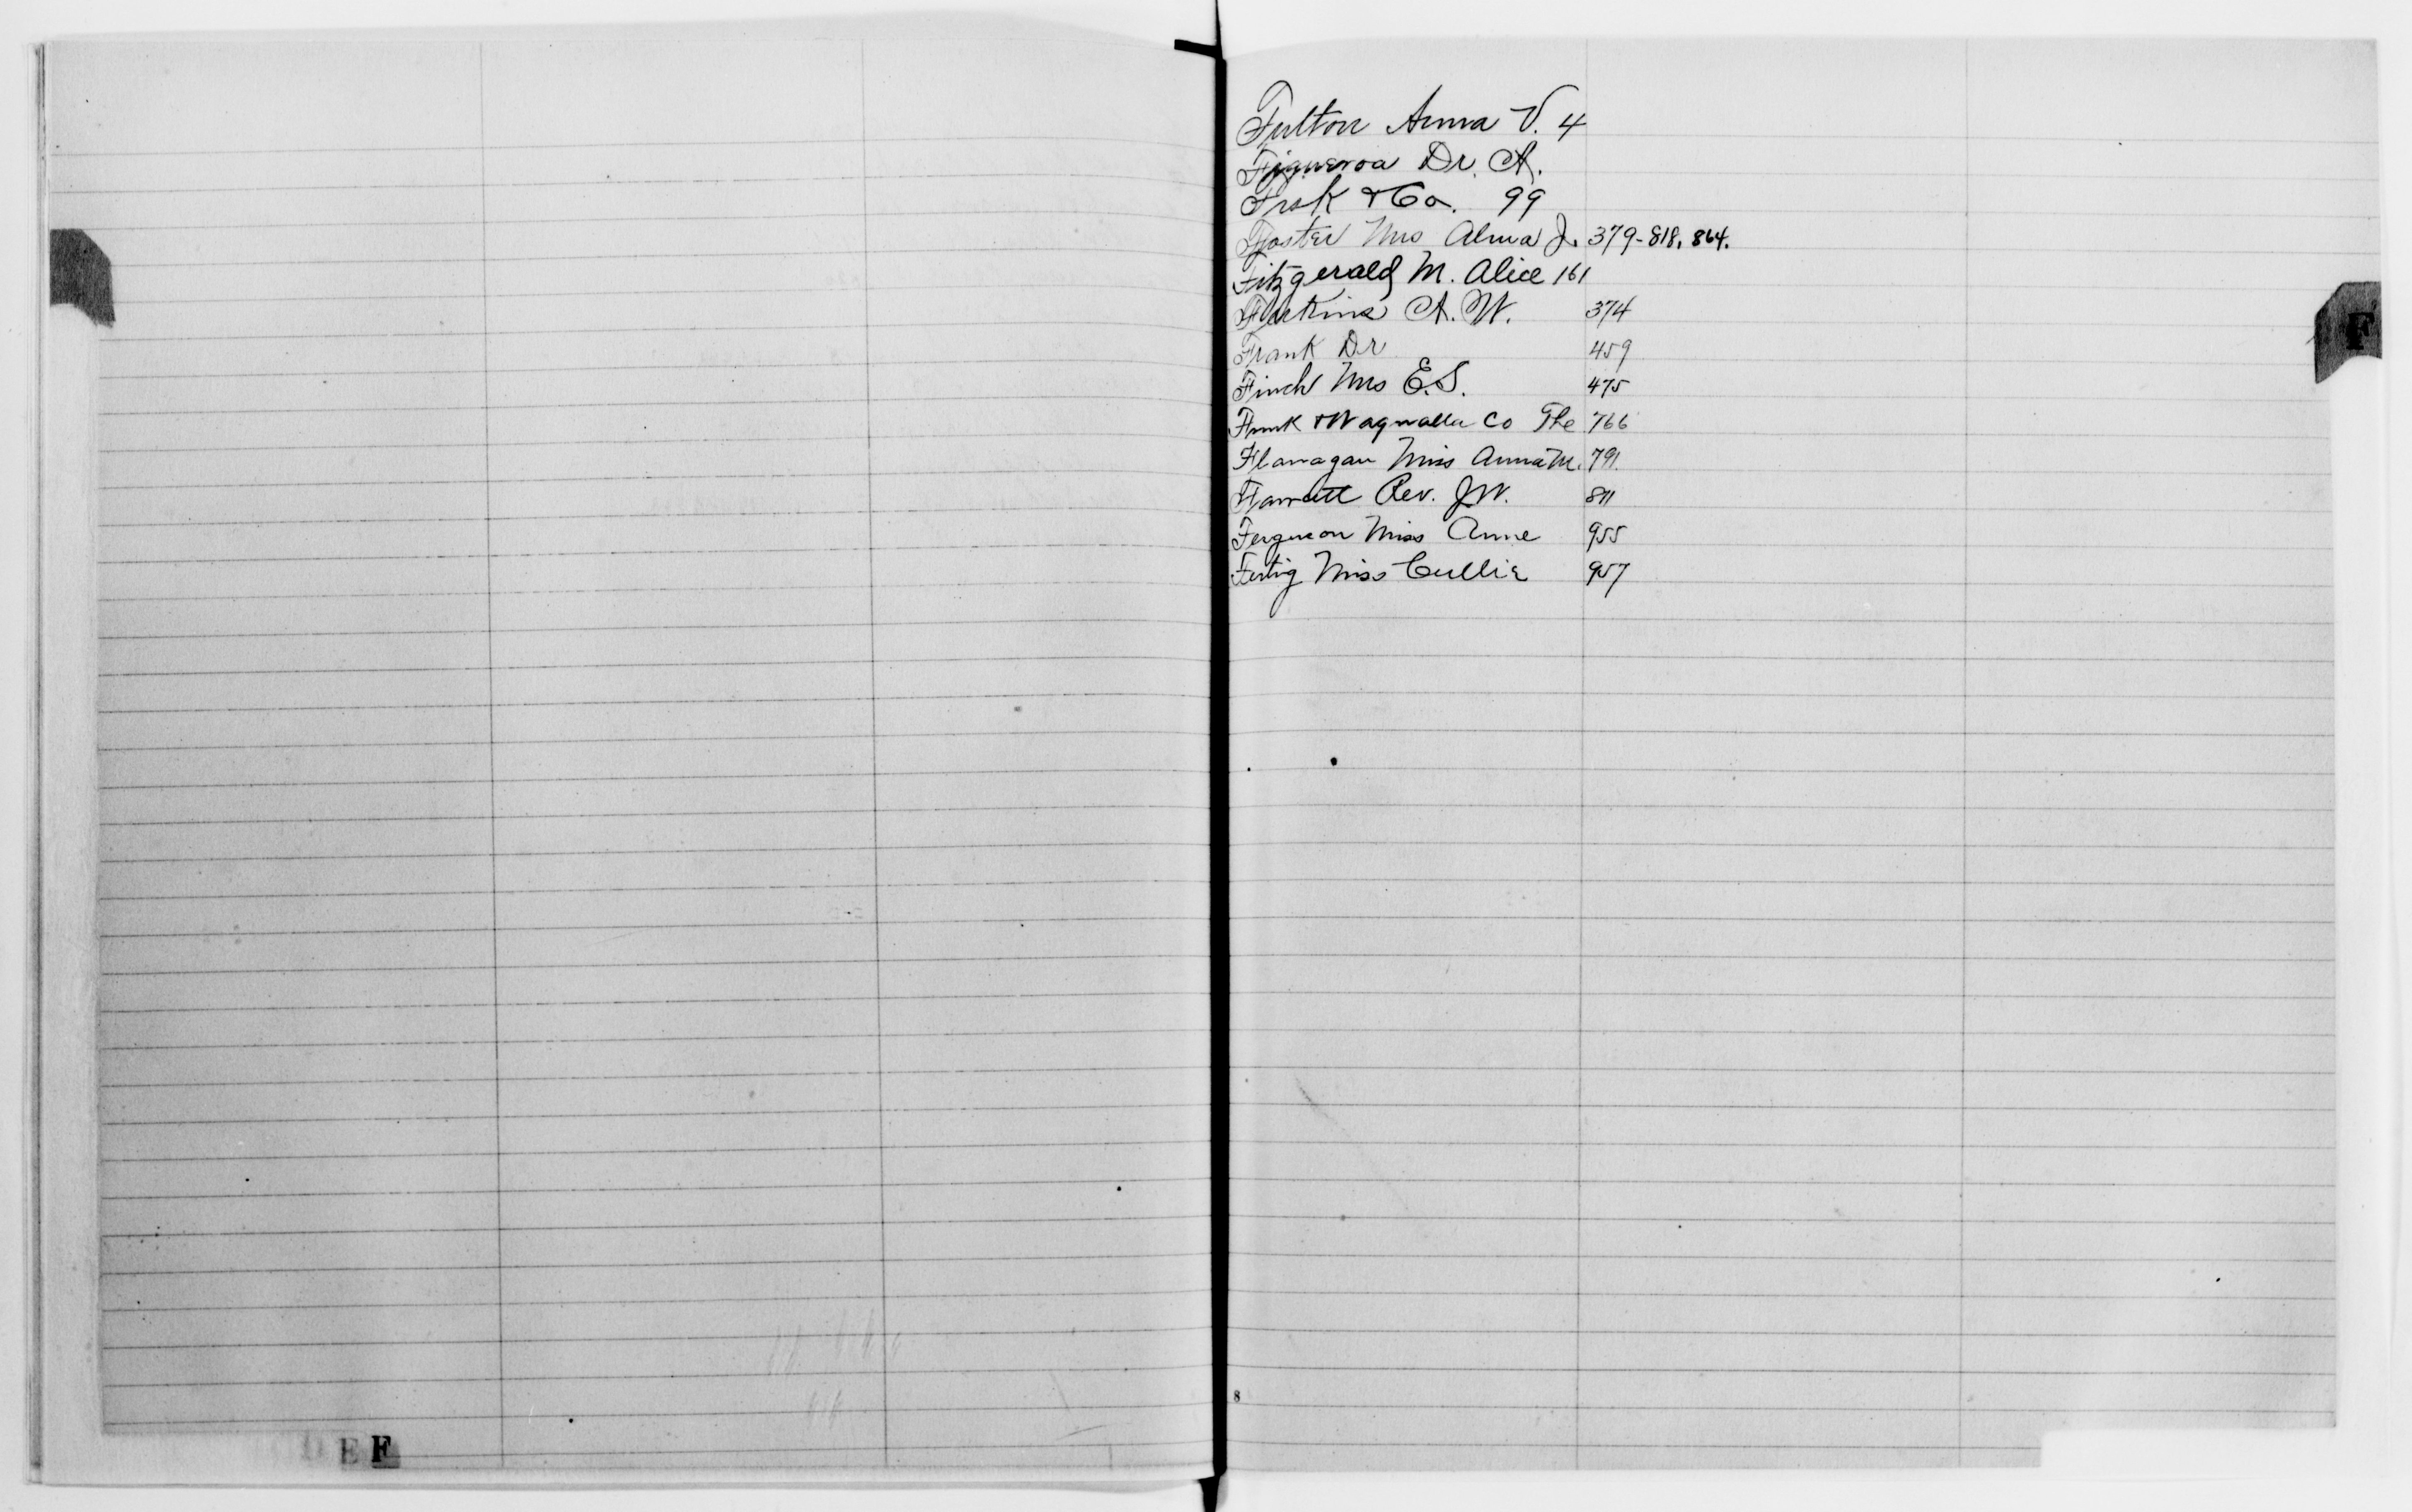 Fulton Anna V. 4
Figueroa Dr. A.
Fisk & Co. 99
Foster Mrs Alma J. 379-818, 864.
Fitzgerald M. Alice 161
A. W. 374
Frank Dr 459
Finch Mrs E.S. 475
Funk & Wagnalls Co The 766
Flanagan Miss Anna M. 791
Rev. J.W. 811
Ferguson Miss Anne 955
Fertig Miss Cullie 957
F
8
D E F